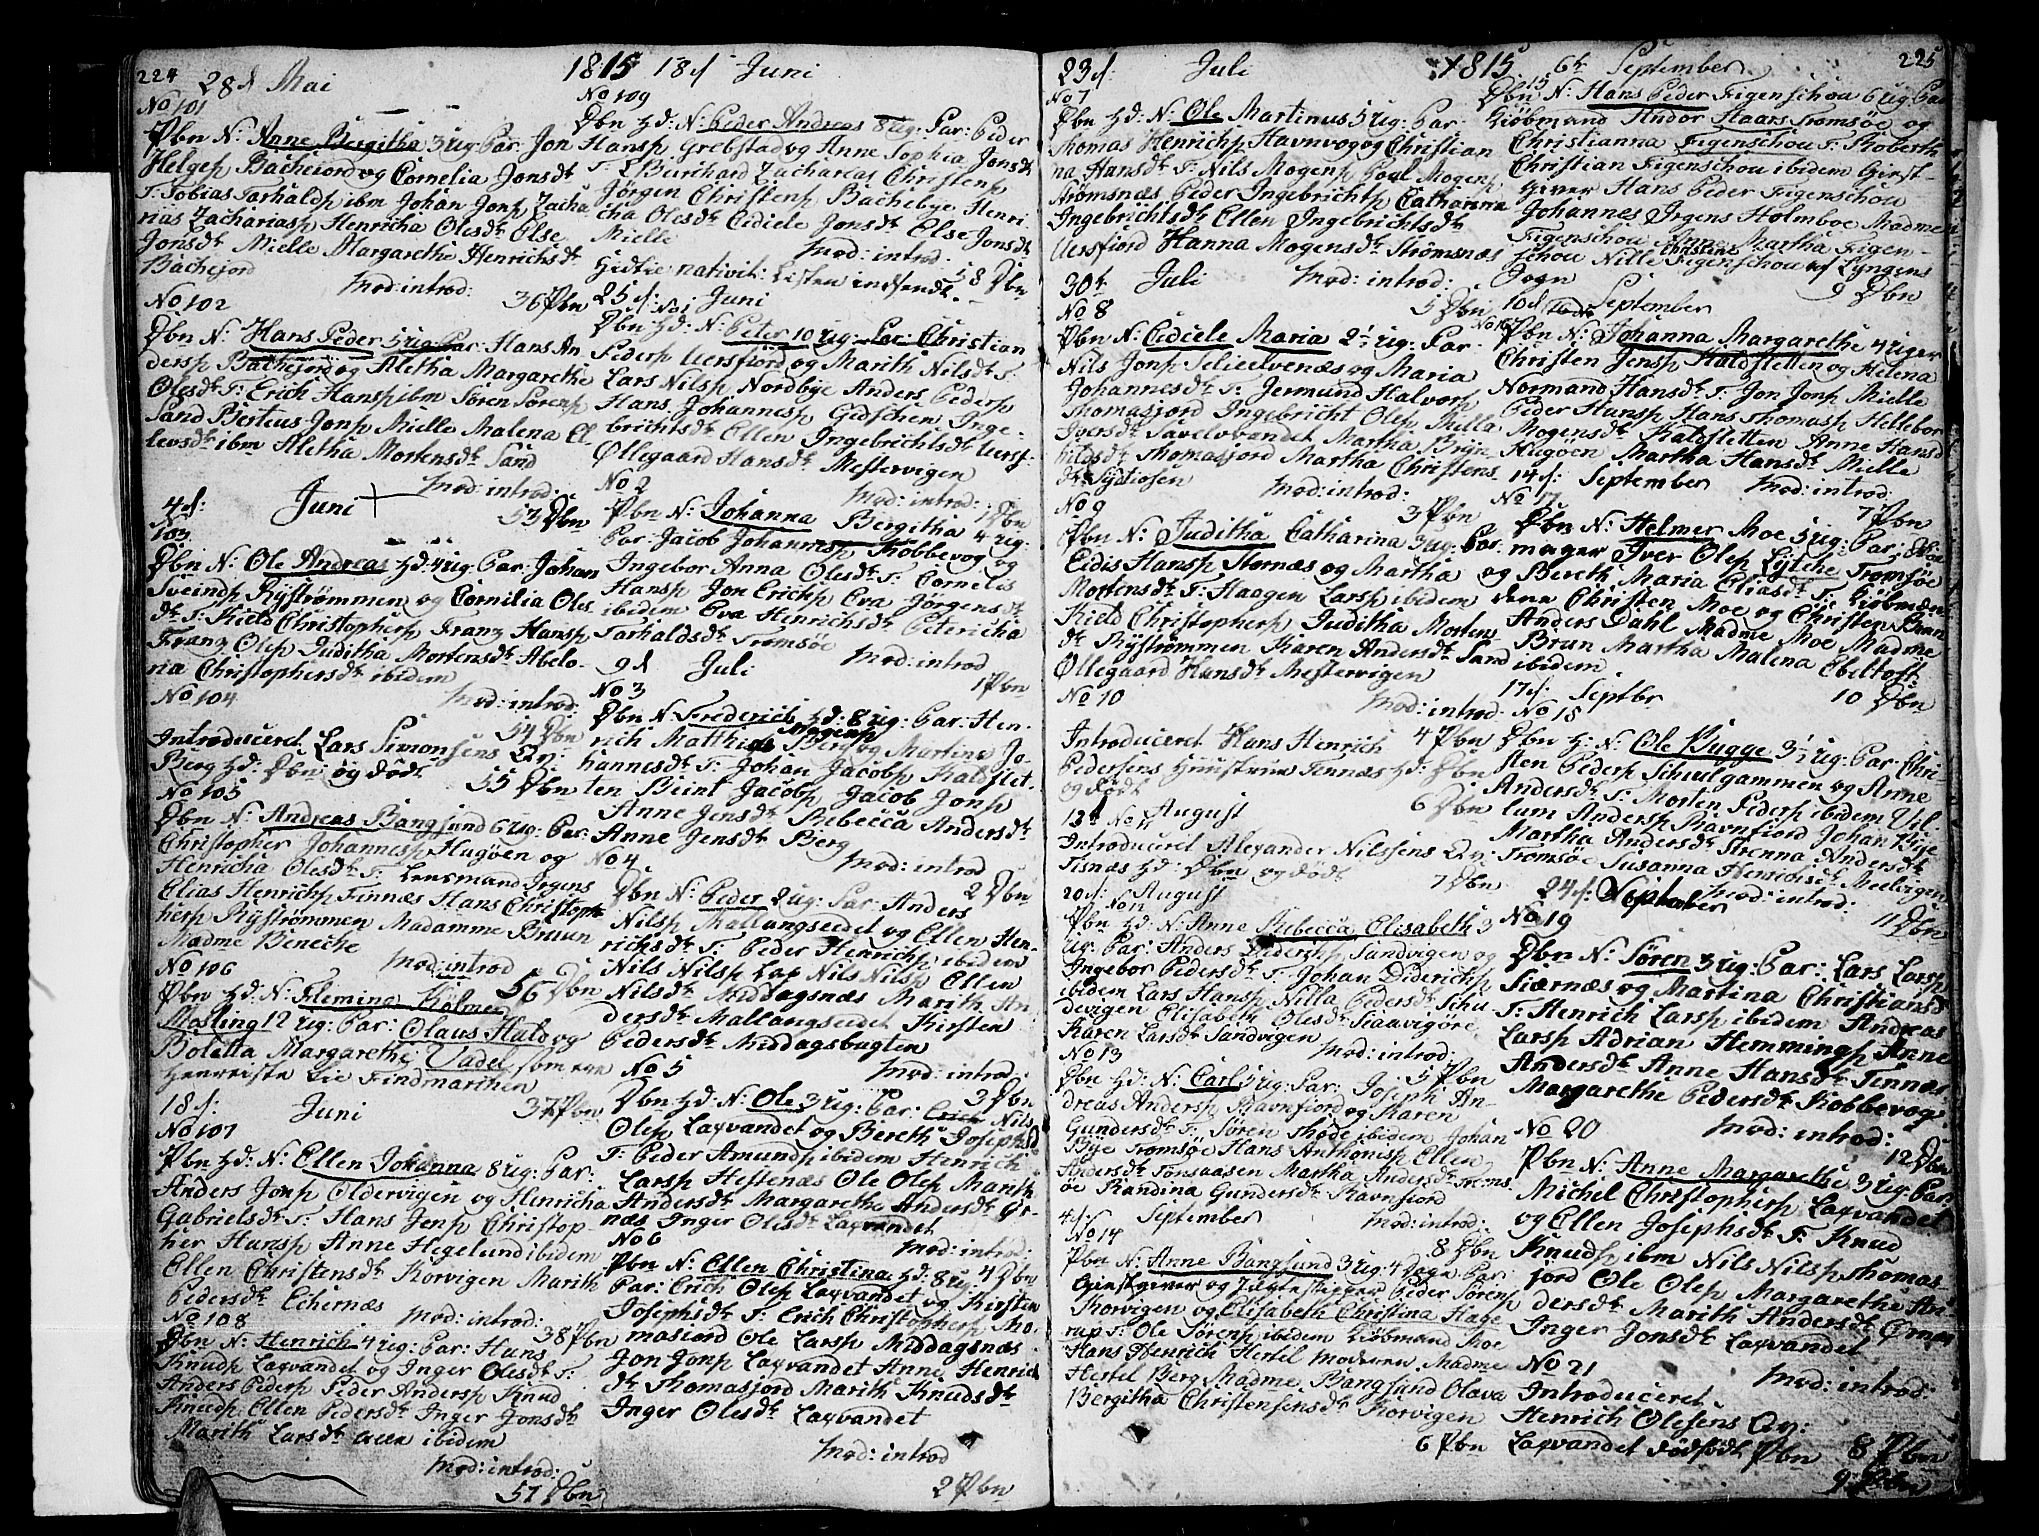 224
28d Mai
No 101
Pbn N: Anne Bergitha 3 ug: Par: Jon
Helges Bachejord og Cornelia Jonsdt
F: Tobias Tarhalds ibm Johan Jons Zacha
rias Zacharias Henricha Olesdt Else
Jonsdt Mielle Margarethe Henrichsdt
Bachejord
Mod: introd:
36 Pbn
No 102
Dbn N: Hans Peder 5 ug: Par: Hans An
ders Bachejord og Aletha Margarethe
Olesdt F: Erich Hans ibm Søren Sørens
Sand Berteus Jons Mielle Malena El
levsdt ibm Aletha Mortensdt Sand
Mod: introd:
53 Dbn
4d: Juni
103
Dbn N: Ole Andreas hd: 4 ug: Par: Johan
Sveinds Rystrømmen og Cornilia Oles
dt F: Kield Christophers Franz Hans
Franz Oles Juditha Mortensdt Abelo
na Christophersdt ibidem
Mod: introd:
54 Dbn
No 104
Introduceret Lars Simonsens Qv:
Berg hd: Dbn og dødt
55 Dbn
No 105
Dbn N: Andreas Bangsund 6 ug: Par:
Christopher Johannes Hugøen og
Henricha Olesdt F: Lensmand Irgens
Elias Henrichs Finnæs Hans Christoph
hers Rystrømmen Madamme Bruun
Madme Beneche
Mod: introd
56 Dbn
No 106
Pbn hd: N: Fleming Holmer
Mosling 12 ug: Par: Olaus Huld og
Boletta Margarethe Vadel som ere
henreiste til Findmarchen
37 Pbn
18d: Juni
No 107
Pbn hd: N: Ellen Johanna 8 ug: Par:
Anders Jons Oldervigen og Henricha
Gabrielsdt F: Hans Jens Christop
her Hans Anne Hegelund ibidem
Ellen Christensdt Korvigen Marith
Pedersdt Echernæs
Mod: introd:
38 Pbn
No 108
Dbn N: Henrich 4 ug: Par: Hans
Knuds Laxvandet og Inger Olesdt F:
Anders Peders Peder Anders Knud
Knuds Ellen Pedersdt Inger Jonsdt
Marith Larsdt ibidem
Mod: introd:
57 Dbn
1815 18d Juni
No 109
Dbn hd: N: Peder Andreas 8 ug: Par: Peder
Hans Grebstad og Anne Sophia Jonsdt
F: Burchard Zacharias Christens
Jörgen Christens Bachebye Henri
cha Olesdt Cidicele Jonsdt Else Jonsdt
Mielle
Mod: introd.
58 Dbn
Hidtil nativit: Listen indsendt.
25d: Juni
No 1
Dbn hd: N: Peter 10 ug: Par: Christian
Peders Uersfjord og Marith Nilsdt F:
Lars Nils Nordbye Anders Peders
Hans Johannes Gidschen Inge-
brichtsdt Ellen Ingebrichtsdt Uersf:
Ollegaard Hansdt Mestervigen
Mod: introd:
1 Dbn
No 2
Pbn N: Johanna Bergitha 4 ug:
Par: Jacob Johannes Kobbevog og
Ingebor Anna Olesdt F: Cornelis
Hans Jon Erichs Eva Jörgensdt
ibidem Eva Henrichsdt Petericha
Tarhaldsdt Tromsöe
Mod: introd
1 Pbn
9d Juli
No 3
Dbn N: Frederich hd: 8 ug: Par: Hen-
rich Matthias Mogens Berg og Martine Jo-
hannesdt F: Johan Jacobs Kaldslet-
ten Bent Jacobs Jacob Jons
Anne Jensdt Rebecca Andersdt
Anne Jensdt Berg
Mod: introd
2 Dbn
No 4
Dbn N: Peder 2 ug: Par: Anders
Nils Mallangseidet og Ellen Hen-
richsdt F: Peder Henrichs ibidem
Nils Nils Lap Nils Nils Ellen
Nilsdt Middagsnæs Marith An
dersdt Mallangseidet Kirsten
Pedersdt Middagsbugten
Mod: introd:
3 Dbn
No 5
Dbn hd: N: Ole 3 ug: Par: Nils
Oles Laxvandet og Bereth Josephsd
F: Peder Amunds ibidem Henrich
Lars Hestenæs Ole Oles Marith
Andersdt Margarethe Andersdt Ør-
næs Inger Olesdt Laxvandet
Mod: introd:
4 Dbn
No 6
Pbn N: Ellen Christina hd: 8 ug:
Par: Erich Oles Laxvandet og Kirsten
Josephsdt F: Erich Christophers Tho-
masjord Ole Lars Middagsnæs
Jon Jons Laxvandet Anne Henrich
dt Thomasjord Marith Knudsdt
Inger Olesdt Laxvandet
Mod: introd
2 Pbn
23d: Juli
No 7
Dbn hd: N: Ole Martinus 5 ug: Par:
Thomas Henrichs Havnvog og Christian
na Hansdt F: Nils Mogens Povl Mogens
Strømsnæs Peder Ingebrichts Catharina
Ingebrichtsdt Ellen Ingebrichtsdt
Uersfjord Hanna Mogensdt Strømsnæs
Mod: introd:
5 Dbn
30te Juli
No 8
Pbn N: Cidicele Maria 2½ ug: Par
Nils Jons Selieelvenæs og Maria
Johannesdt F: Jermund Halvors
Thomasjord Ingebricht Oles Nilla
Iversdt Savelvvandet Martha Bryn
hildsdt Thomasjord Martha Christens
dt Sydtiosen
Mod: introd:
3 Pbn
No 9
Pbn N: Juditha Catharina 3 ug: Par:
Eidis Hans Stornæs og Martha
Mortensdt F: Haagen Lars ibidem
Kield Christophers Juditha Morten
dt Rystrømmen Karen Andersdt Sand
Ollegaard Hansdt Mestervigen
Mod: introd.
4 Pbn
No 10
Introduceret Hans Henrich
Pedersens Huustrue Finnæs hd: Dbn
og dødt
6 Dbn
12te August
No 11
Introduceret Alexander Nilssens Qv:
Tisnæs hd: Dbn og dødt
7 Dbn
20d: August
No 12
Pbn hd: N: Anne Rebecca Elisabeth 3
ug: Par: Anders Diderichs Sandvigen og
Ingebor Pedersdt F: Johan Diderichs
ibidem Lars Hans Nilla Pedersdt Schu
devigen Elisabeth Olesdt Skaavigøre
Karen Larsdt Sandvigen
Mod: introd:
5 Pbn
No 13
Dbn hd: N: Carl 5 ug: Par: Joseph An-
dreas Anders Ravnfiord og Karen
Gundersdt F: Søren Thode ibidem Johan
Bye Tromsøe Hans Anthonis Ellen
Andersdt Tønsaasen Martha Andersdt Troms
øe Randina Gundersdt Ravnfiord
Mod: introd:
8 Dbn
4d: September
No 14
Pbn N: Anne Bangsund 3 ug: 4 Dage Par:
Giestgiver og Jægtskipper Peder Sørens
Korvigen og Elisabeth Christina Hage
rup F: Ole Sørens ibidem Kiöbmand Moe
Hans Henrich Hertel Moderen Madme
Hertel Berg Madme Bangsund Olava
Bergitha Christensensdt Korvigen
6 Pbn
1815 6te September
225
15
Dbn N: Hans Peder Figenschou 6 ug: Par
Kiöbmand Andor Haars Tromsöe og
Christianna Figenschou F: Roberth
Christian Figenschou ibidem Giest-
giver Hans Peder Figenschou
Johannes Irgens Holmboe Madme
Figenschou Anne Martha Figen-
schou Nille Christine Figenschou af Lyngens
Sogn
9 Dbn
10d September
No 16
Pbn N: Johanna Margarethe 4 uger
Christen Jens Kaldsletten og Helena
Normand Hansdt F: Jon Jons Mielle
Peder Hans Hans Thomas Hellebor
Mogensdt Kaldsletten Anne Hansd
Hugøen Martha Hansdt Mielle
Mod: introd:
7 Pbn
14d: September
No 17
Dbn N: Helmer Moe 5 ug: Par: Skoe
mager Iver Oles Lytche Tromsöe
og Bereth Maria Eliasdt F: Kiöbmæn
dene Christen Moe og Christen Brun
Anders Dahl Madme Moe Madme
Brun Martha Malena Ebeltoft
ibidem
10 Dbn
17d: Septbr
No 18
Dbn h: N: Ole Rygge 3½ ug: Par: Chri-
sten Peders Schulgammen og Anne
Andersdt F: Morten Peders ibidem Vil-
lum Anders Ravnfjord Johan Bye
Martha Andersdt Strenna Andersdt
Tromsöe Susanna Henrichsdt Meelvigen
Mod: introd:
11 Dbn
24d: September
No 19
Dbn N: Søren 3 ug: Par: Lars Lars
Siærnæs og Martina Christiansd
F: Henrich Lars ibidem Andreas
Lars Adrian Hemmings Anne
Andersdt Anne Hansdt Finnæs
Margarethe Pedersdt Kobbevog
Mod: introd:
12 Dbn
No 20
Pbn N: Anne Margarethe 3 ug: Par:
Michel Christophers Laxvandet
og Ellen Josephsdt F: Knud
Knuds ibm Nils Nils Thomas-
jord Ole Oles Margarethe An
dersdt Marith Andersdt Ørnæs
Inger Jonsdt Laxvandet
Mod: introd:
8 Pbn
No 21
Introduceret
Henrich Olesens Qv:
Laxvandet dødfødt Pbn
9 Pbn